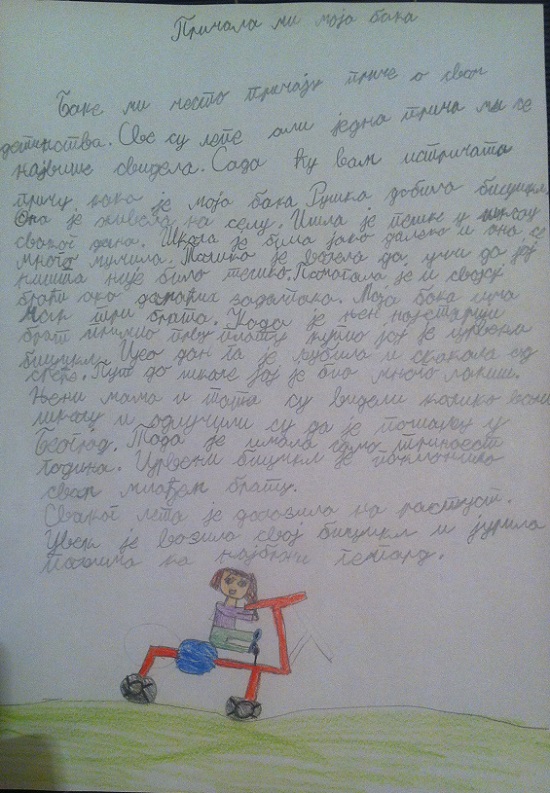 Причала ми моја бака
Баке ми често причају приче о свом
детињства. Све су лепе али једна прича ми се
највише свидела. Сада ћу вам испричати
причу, како је моја бака Ружика добила бицикл.
Она је живела на селу. Ишла је пешке у школу
сваког дана. Школа је била јако далеко и она се
много мучила. Толико је волела да учи да јој
ништа није било тешко. Помагала је и својој
браћи око домаћих задатака. Моја бака има
чак три брата. Када је њен најстарији
брат примио прву плату купио јој је црвени
бицикл. Цео дан га је љубила и скакала од
среће. Пут до школе јој је био много лакши.
Њени мама и тата су видели колико воли
школу и одлучили су да је пошаљу у
Београд. Тада је имала само тринаест
година. Црвени бицикл је поклонила
свом млађем брату.
Сваког лета је долазила на распуст.
Увек је возила свој бицикл и јурила
пољима као најбржи гепард.